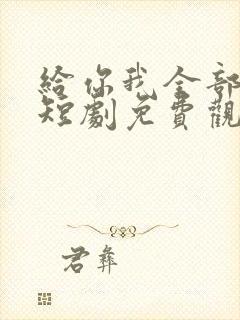 給你我全部
短劇免費觀
君彝